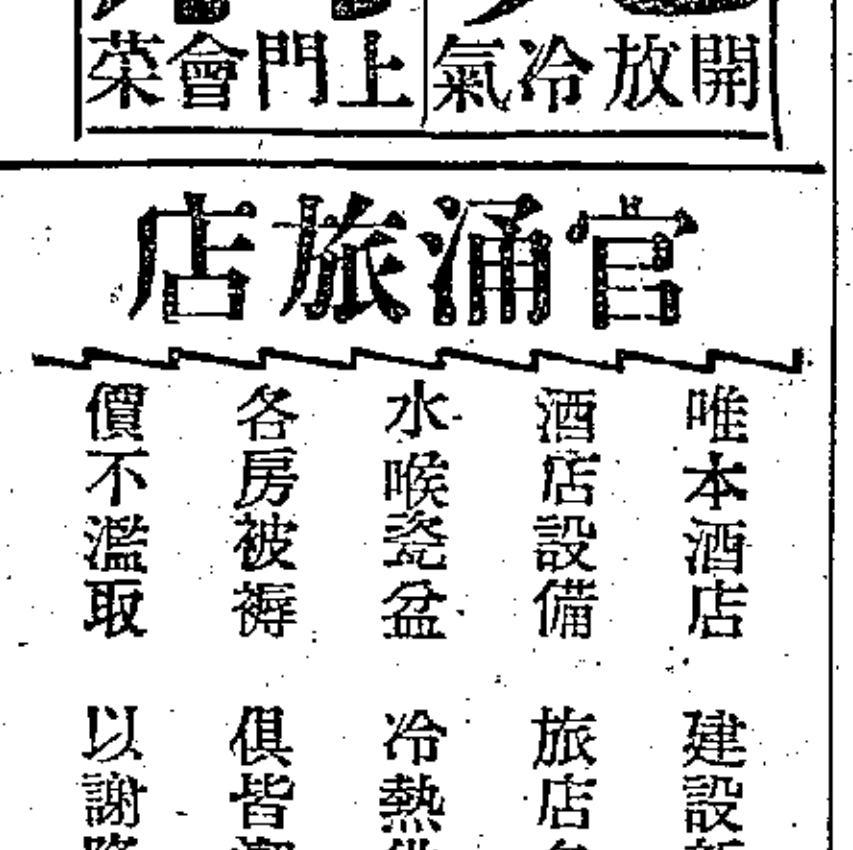 開放冷氣
上門會菜
官涌旅店
唯本酒店 建設
酒店設備 旅店
水喉瓷盆 冷熱
各房被褥 俱皆
價不濫取 以謝